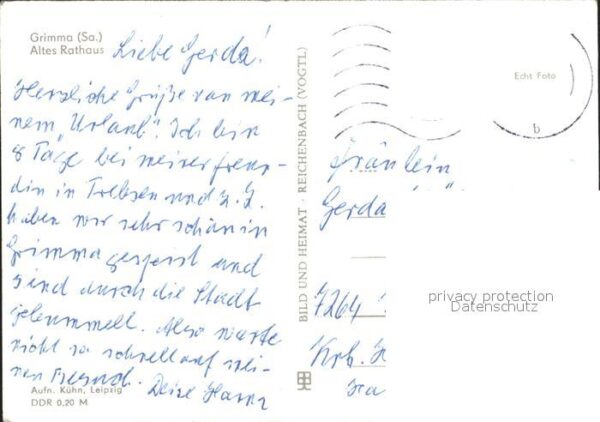 Grimma (Sa.)
Altes Rathaus
Liebe Gerda!
Herzliche Grüße von mei-
nem „Urlaub". Ich bin
8 Tage bei meiner Freun-
din in Trebsen und z. Z.
haben wir sehr schön in
Grimma gespeist und
sind durch die Stadt
gebummelt. Also warte
nicht so schnell auf mei-
nen
Deine
Aufn. Kühn, Leipzig
DDR 0,20 M
BILD UND HEIMAT · REICHENBACH (VOGTL)
Echt Foto
b
Fräulein
Gerda
7264
Krb.
privacy protection
Datenschutz